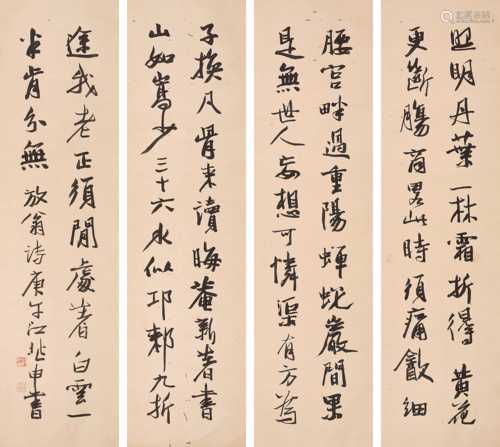 照明丹葉一林霜折得黄花
更斷腸商畧此時須痛飲細
腰宫畔過重陽蟬蛻巖間果
是無世人妄想可憐渠有方為
子换凡骨来讀晦菴新著書
山如嵩少三十六水似邛郲九折
途我老正須閒處着白雲一
半肯分無放翁詩庚午江兆申書